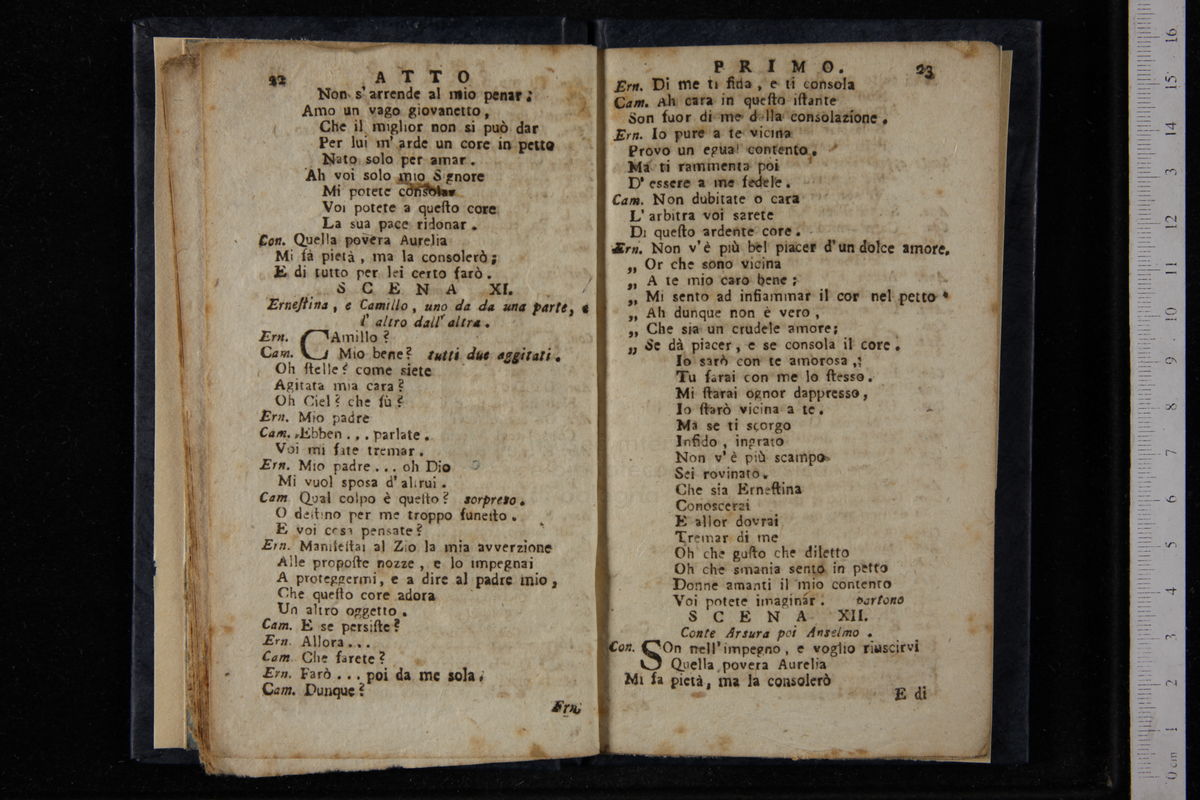 22 ATTO
Non s'arrende al mio penar;
Amo un vago giovanetto,
Che il miglior non si può dar
Per lui m' arde un core in petto
Nato solo per amar.
Ah voi solo mio S gnore
Mi potete consolar
Voi potete a queſto core
La sua pace ridonar.
Con. Quella povera Aurelia
Mi fà pietà, ma la consolerò;
E di tutto per lei certo farò.
SCENA XI.
Erneſtina, e Camillo, uno da da una parte, e
l' altro dall' altra.
Ern. CAmillo?
Cam. Mio bene? tutti due aggitati.
Oh ſtelle? come siete
Agitata mia cara?
Oh Ciel? che fù?
Ern. Mio padre
Cam. Ebben... parlate.
Voi mi fate tremar.
Ern. Mio padre... oh Dio
Mi vuol sposa d' altrui.
Cam. Qual colpo è queſto? sorpreso.
O deſtino per me troppo funeſto.
E voi cosa pensate?
Ern. Manifeſtai al Zio la mia avverzione
Alle propoſte nozze, e lo impegnai
A proteggermi, e a dire al padre mio,
Che queſto core adora
Un altro oggetto.
Cam. E se persiſte?
Ern. Allora...
Cam. Che farete?
Ern. Farò... poi da me sola;
Cam. Dunque?
Ern.
PRIMO. 23
Ern. Di me ti fida, e ti consola
Cam. Ah cara in queſto iſtante
Son fuor di me dalla consolazione.
Ern. Io pure a te vicina
Provo un egual contento.
Ma ti rammenta poi
D' essere a me fedele.
Cam. Non dubitate o cara
L' arbitra voi sarete
Di queſto ardente core.
Ern. Non v'è più bel piacer d'un dolce amore.
„ Or che sono vicina
„ A te mio caro bene;
„ Mi sento ad infiammar il cor nel petto
„ Ah dunque non è vero,
„ Che sia un crudele amore;
„ Se dà piacer, e se consola il core.
Io sarò con te amorosa,;
Tu farai con me lo ſtesso.
Mi ſtarai ognor dappresso,
Io ſtarò vicina a te.
Ma se ti scorgo
Infido, ingrato
Non v'è più scampo
Sei rovinato.
Che sia Erneſtina
Conoscerai
E allor dovrai
Tremar di me
Oh che guſto che diletto
Oh che smania sento in petto
Donne amanti il mio contento
Voi potete imaginár. partono
SCENA XII.
Conte Arsura poi Anselmo.
Con. SOn nell'impegno, e voglio riuscirvi
Quella povera Aurelia
Mi fa pietà, ma la consolerò
E di
0 cm 1 2 3 4 5 6 7 8 9 10 11 12 3 14 15 16